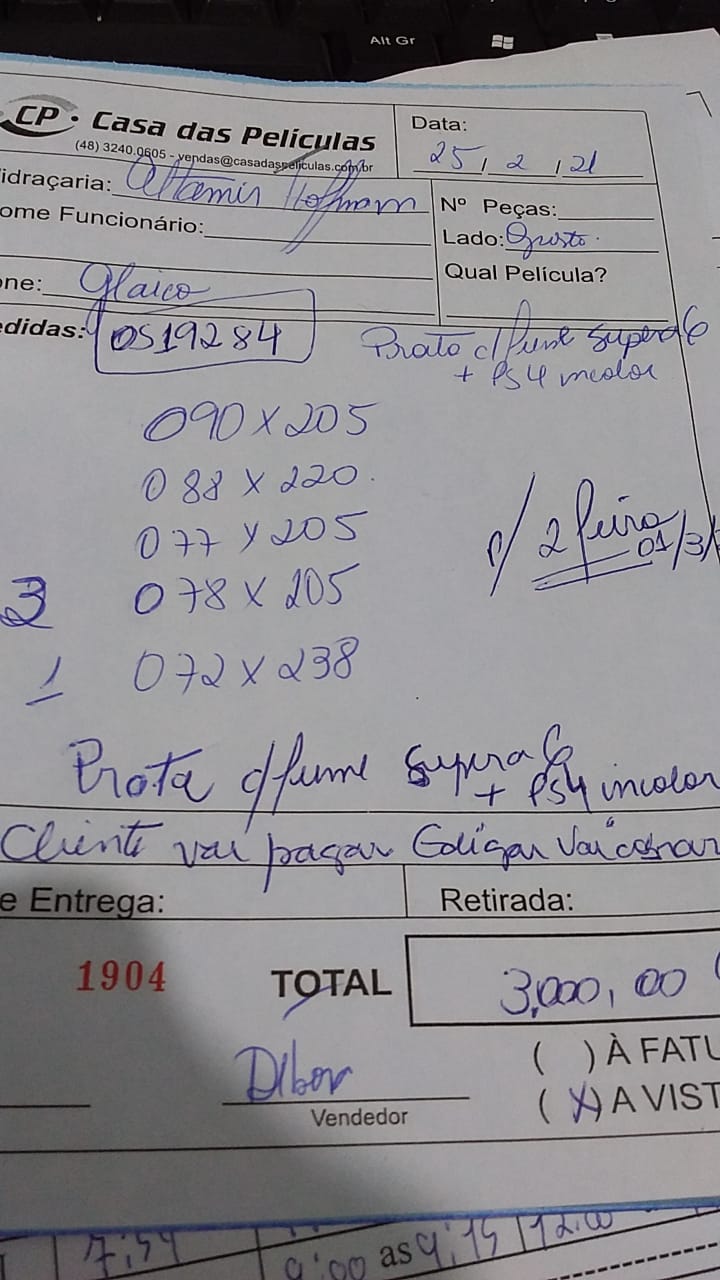 Alt Gr
CP • Casa das Películas
(48) 3240.0605 - vendas@casadaspeliculas.com.br
Data: 25 / 2 / 21
idraçaria: Altamir Hofmam
ome Funcionário:
Nº Peças:
Lado: Gusto.
Qual Película?
ne: Glaico
edidas: OS19284
Prata c/ fume Supera 6
+ PS4 incolor
090 X 205
088 X 220.
077 X 205
3 078 X 205
1 072 X 238
p/ 2 feira 01/3/
Prata c/ fume Supera 6
+ PS4 incolor
Cliente vai pagar
e Entrega:
Retirada:
1904
TOTAL
3,000,00
( ) À FATU
(X) A VIST
Vendedor
7:54
9:00 as 9:15
12:00